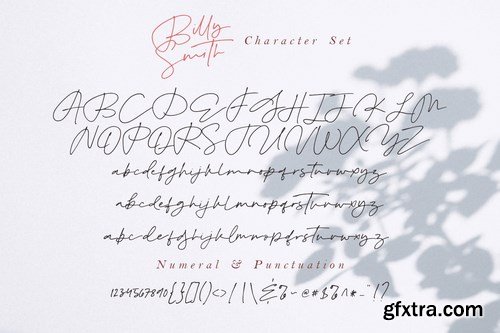 Billy
Smith
Character Set
ABCDEFGHIJKLM
NOPQRSTUVWXYZ
abcdefghijklmnopqrstuvwxyz
abcdefghijklmnopqrstuvwxyz
abcdefghijklmnopqrstuvwxyz
Numeral & Punctuation
1234567890{}[]()<>/|\
gfxtra.com